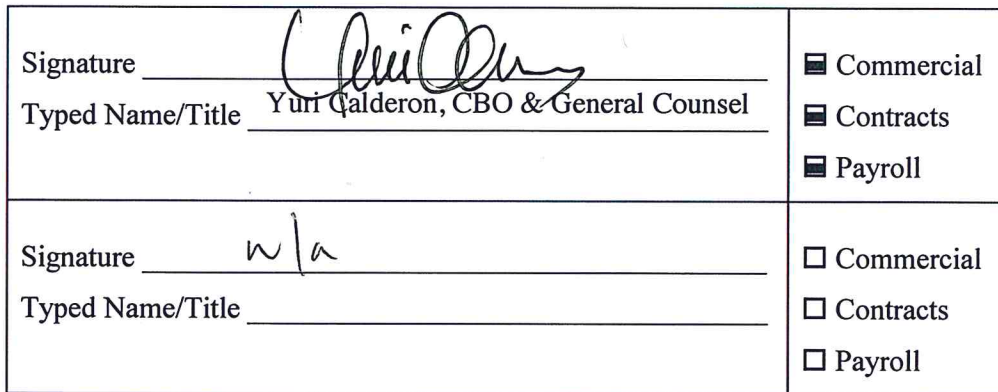 Signature
Typed Name/Title Yuri Calderon, CBO & General Counsel
Commercial
Contracts
Payroll
Signature n/a
Typed Name/Title
Commercial
Contracts
Payroll